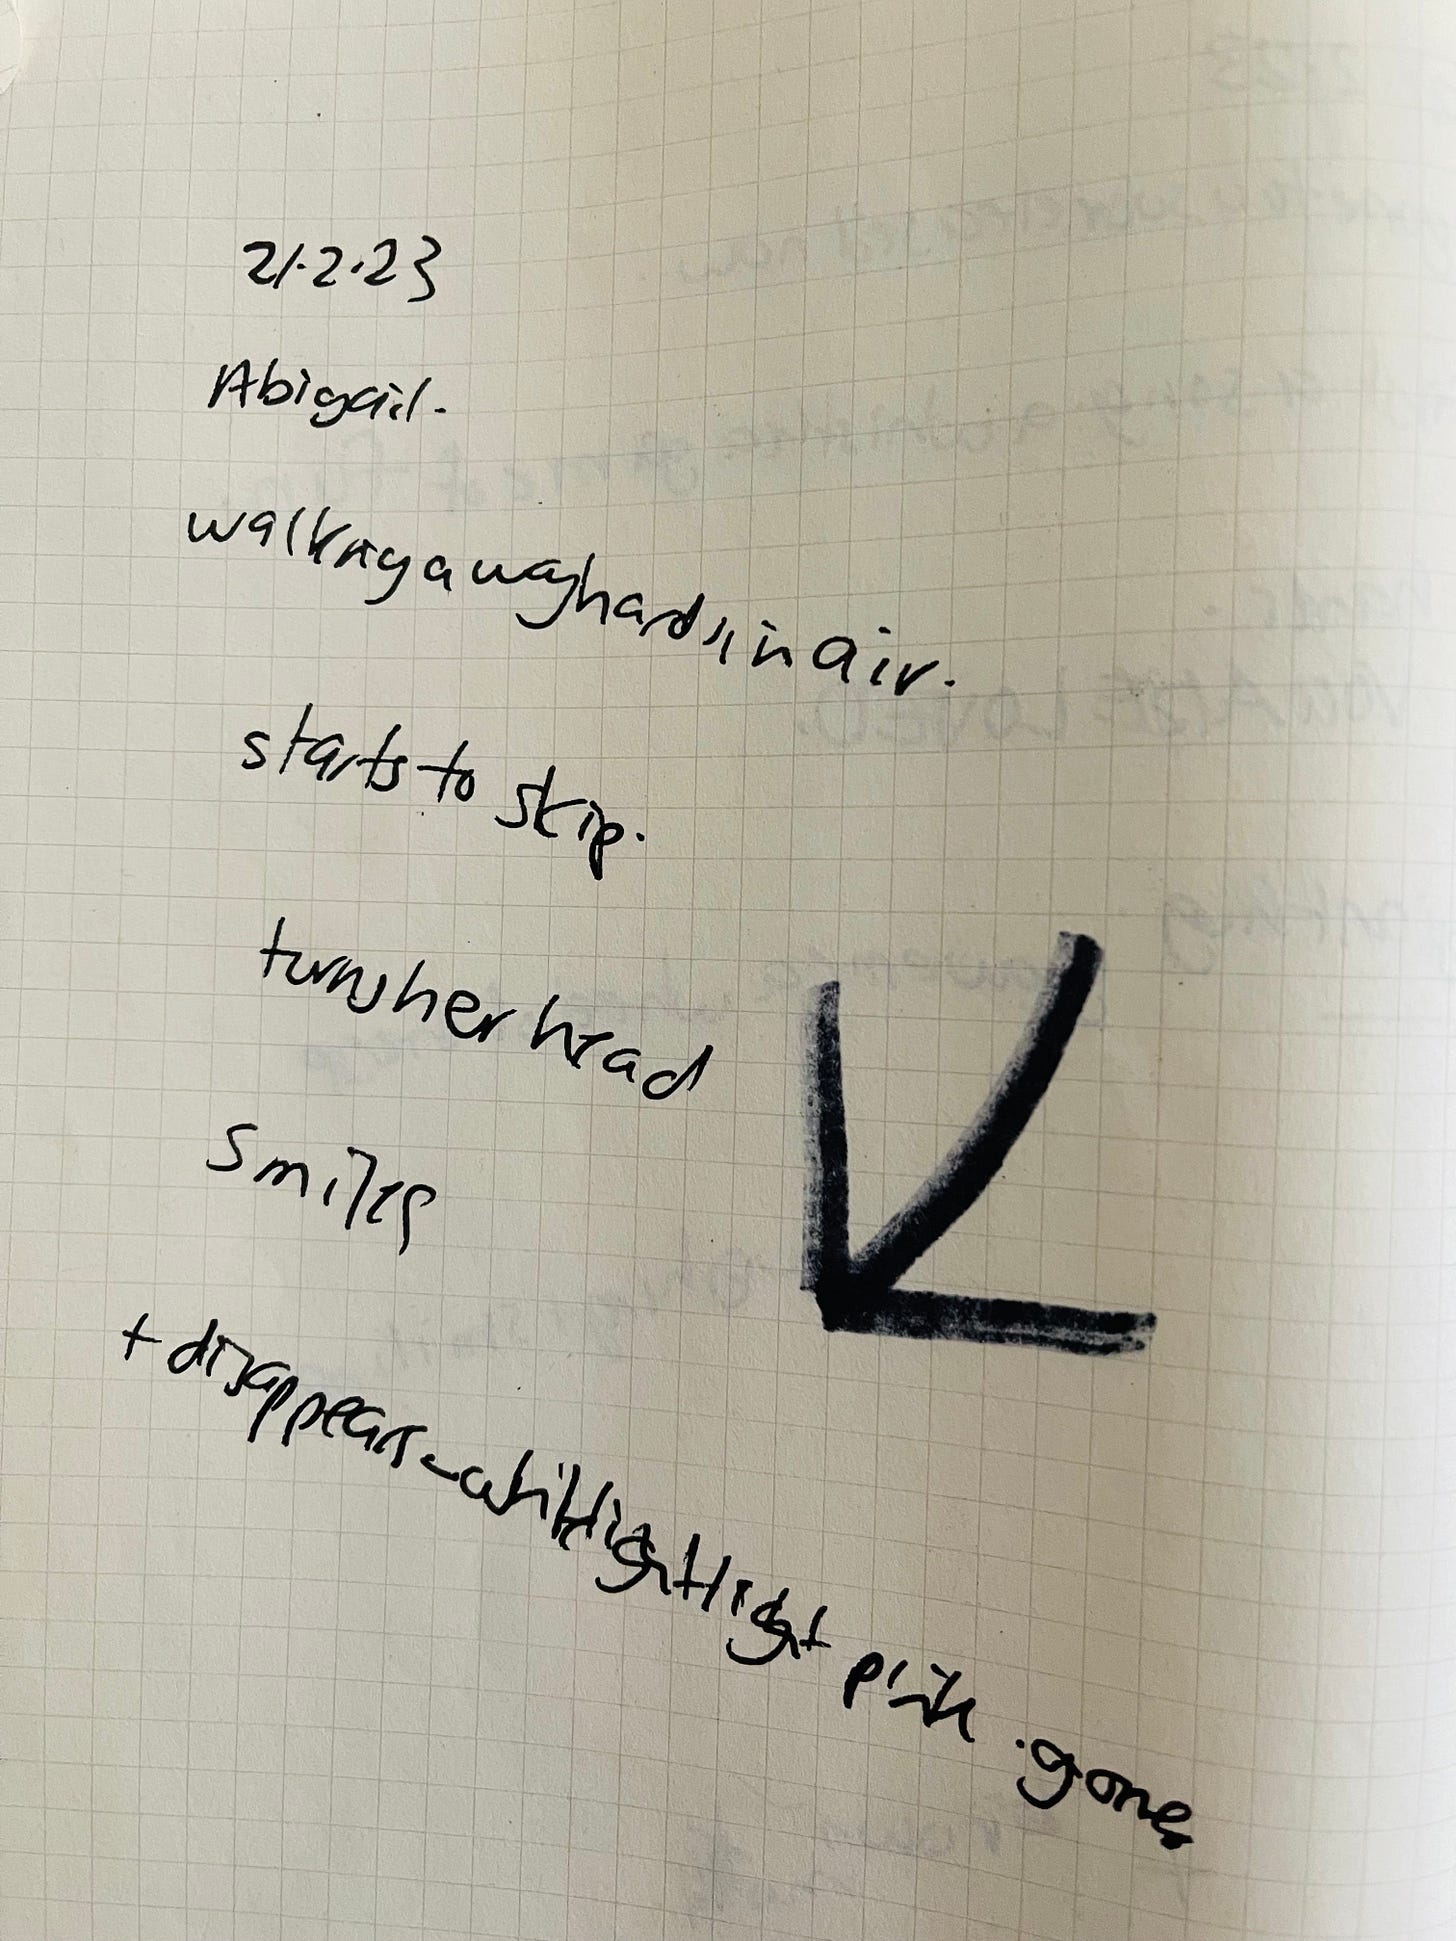 21.2.23
Abigail.
walking away hands in air.
starts to skip.
turns her head
smiles
+ disappears - white light light pink . gone